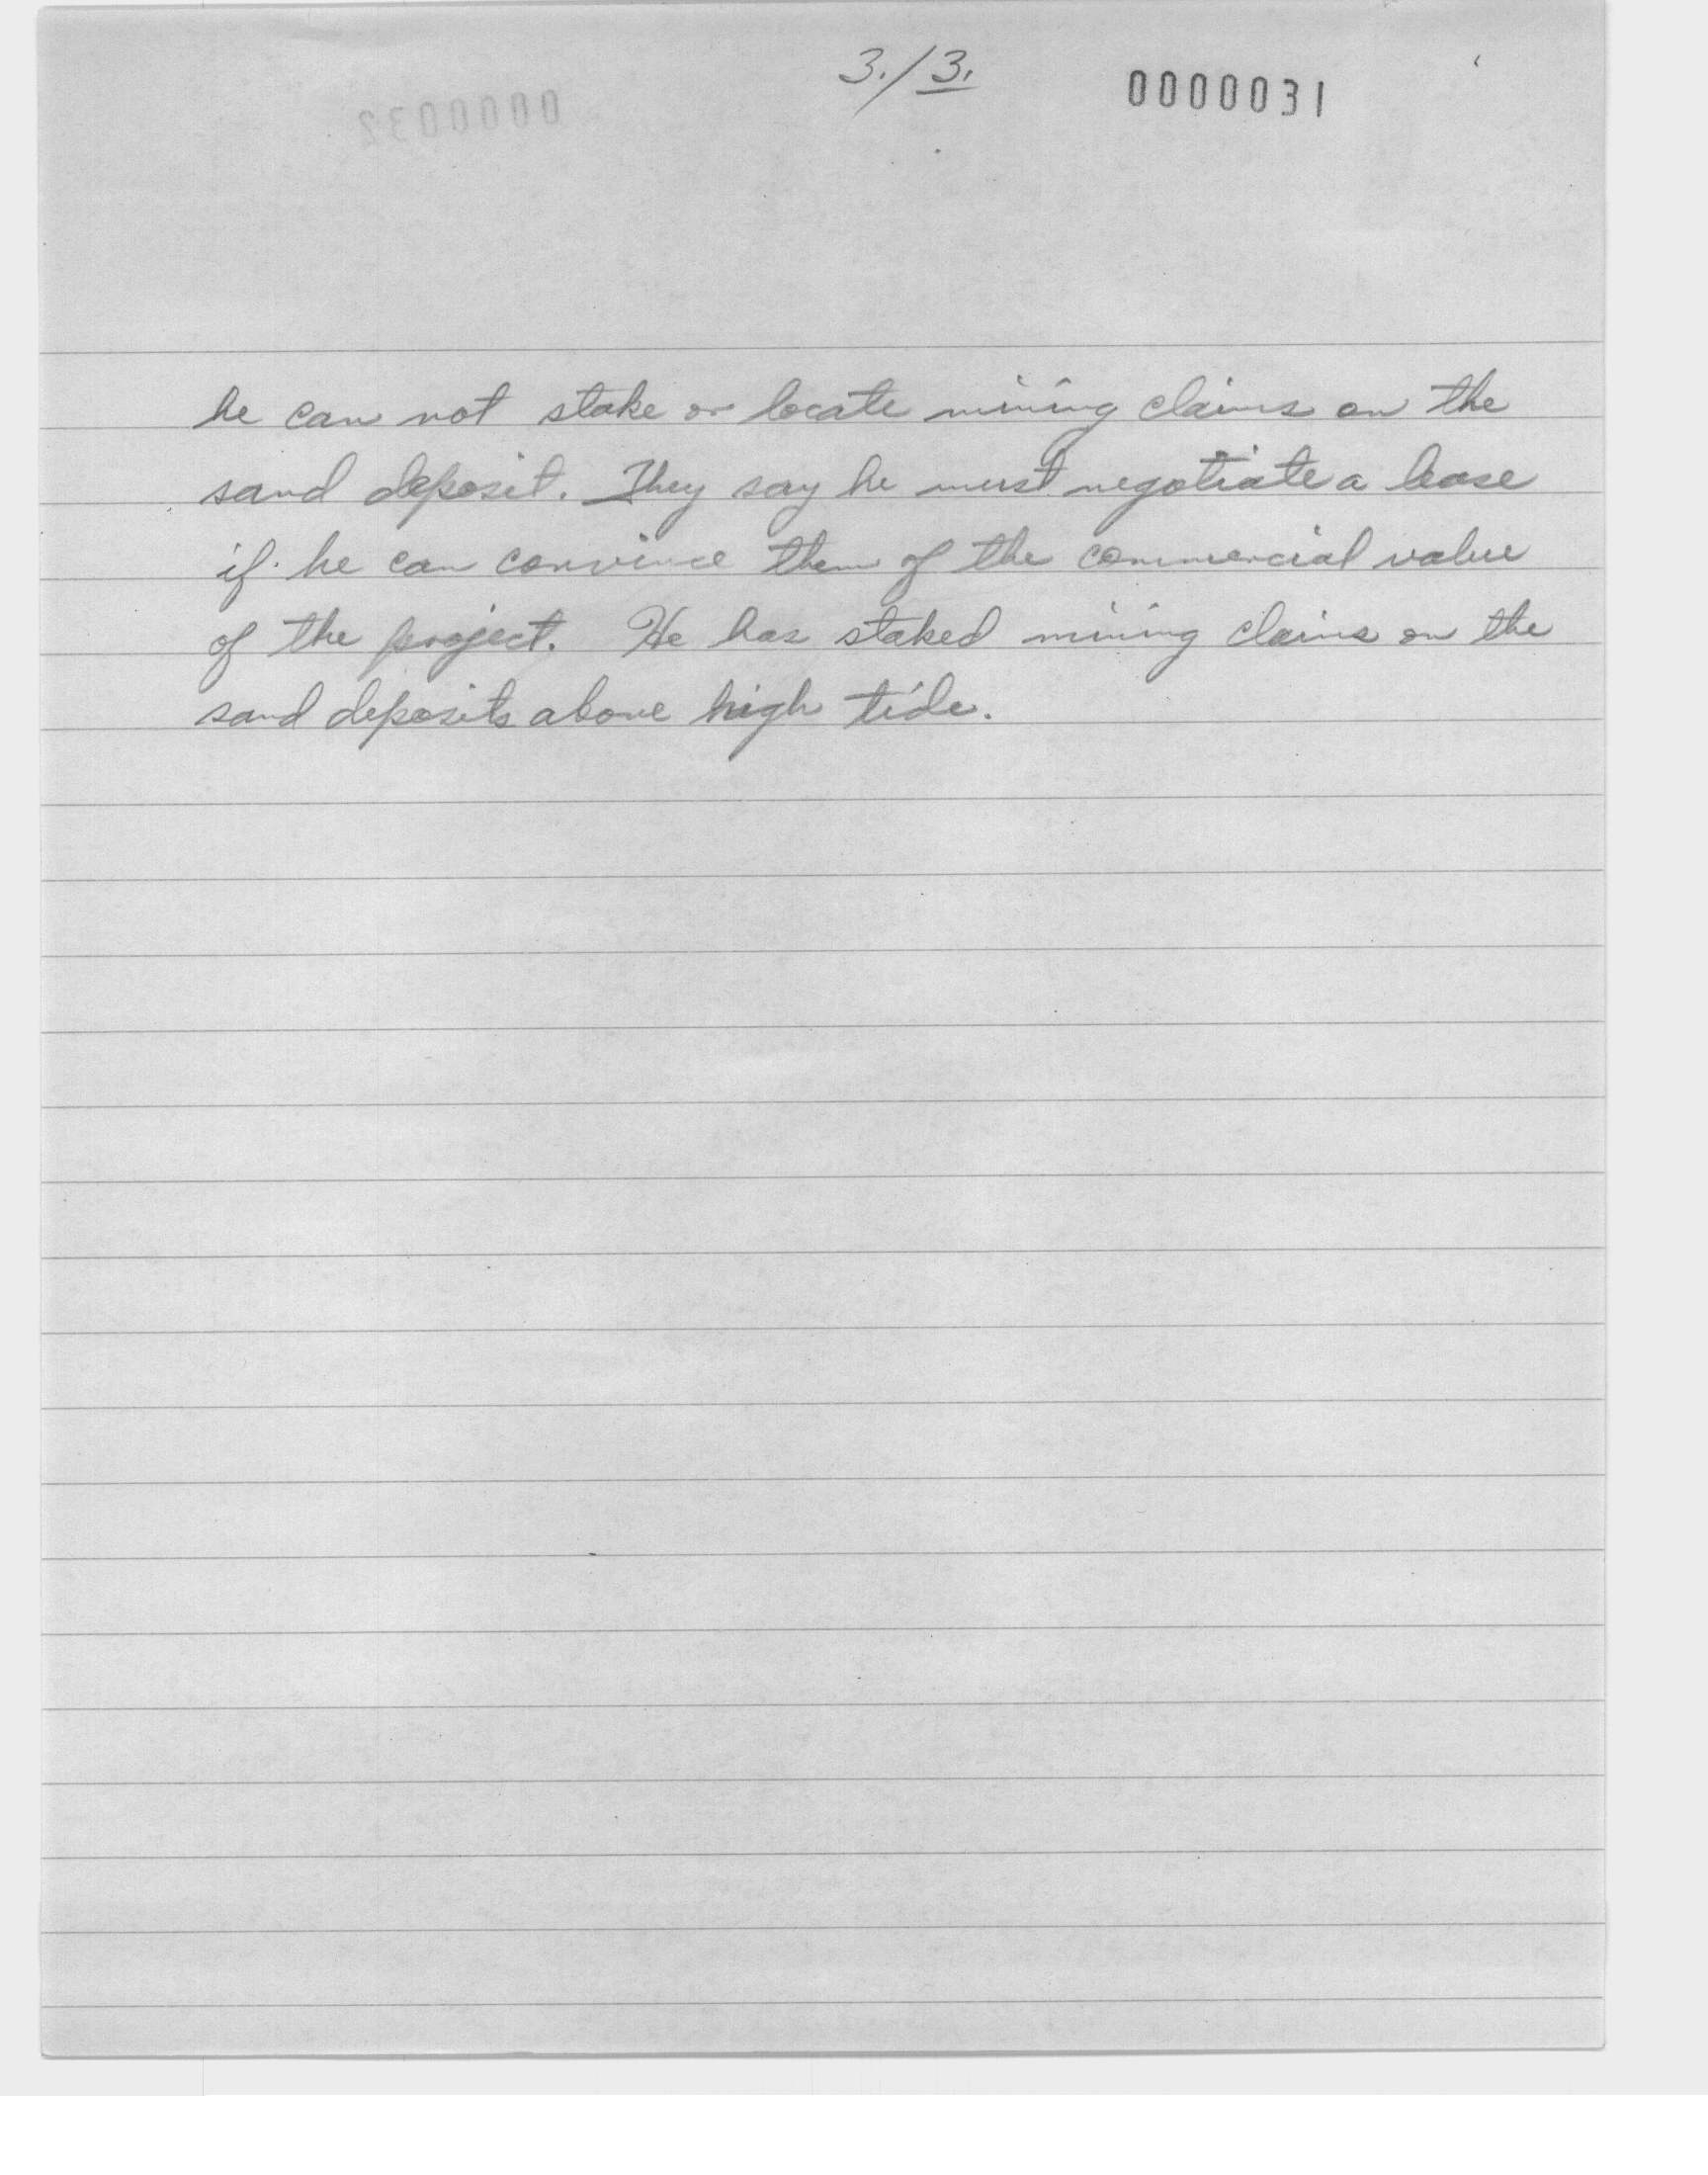 3./3.
0000031
0000032
he can not stake or locate mining claims on the
sand deposit. They say he must negotiate a lease
if he can convince them of the commercial value
of the project. He has staked mining claims on the
sand deposits above high tide.